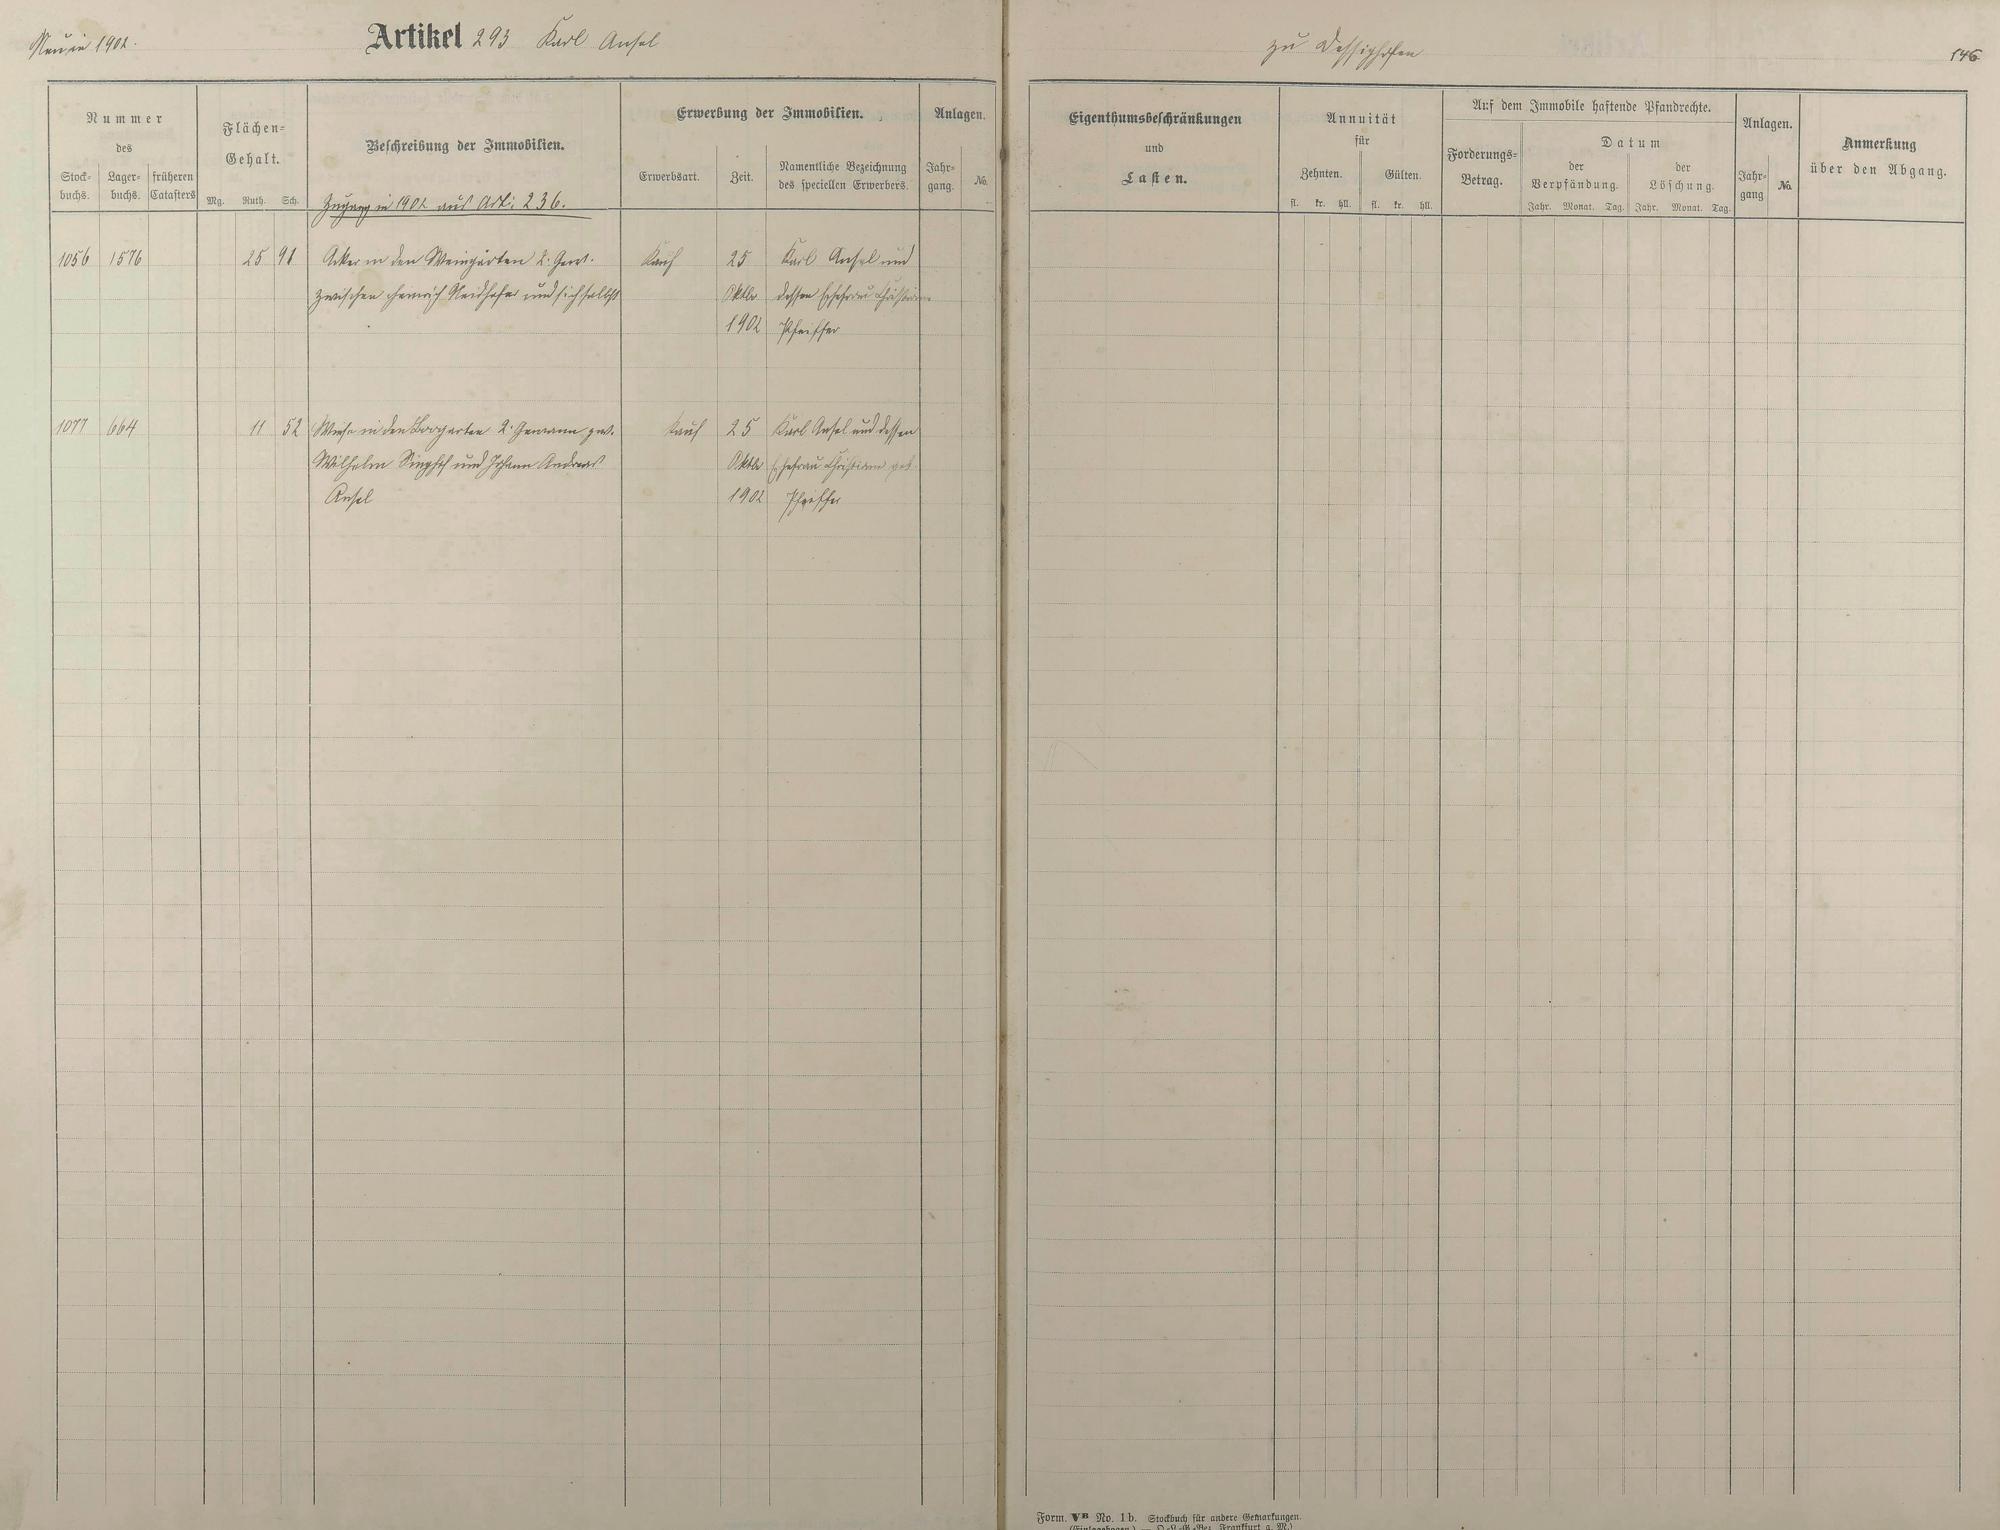 Neu in 1902.
Artikel 293 Karl Ansel
zu Dessighofen
146
Nummer
des
Stock-
buchs.
Lager-
buchs.
früheren
Catasters
Flächen-
Gehalt.
Mg. Ruth. Sch.
Beschreibung der Immobilien.
Zugang in 1902 aus Art: 236.
Erwerbung der Immobilien.
Erwerbsart.
Zeit.
Namentliche Bezeichnung
des speciellen Erwerbers.
Anlagen.
Jahr-
gang.
No.
Eigenthumsbeschränkungen
und
Lasten.
Annuität
für
Zehnten.
Gülten.
fl. kr. hll. fl. kr. hll.
Auf dem Immobile haftende Pfandrechte.
Forderungs-
Betrag.
Datum
der
Verpfändung.
der
Löschung.
Jahr. Monat. Tag. Jahr. Monat. Tag.
Anlagen.
Jahr-
gang
No.
Anmerkung
über den Abgang.
1056 1576 25 98 Acker in den Weingärten 2. Gew. Kauf 25 Karl Ansel und
zwischen Heinrich Neidhöfer und sich selbst Oktbr dessen Ehefrau Christiane
1902 Pfeiffer
1077 664 11 52 Wiese in den 2. Gewann zw. Kauf 25 Karl Ansel und dessen
Wilhelm Singhof und Johann Andreas Oktbr Ehefrau Christiane geb.
Ansel 1902 Pfeiffer
Form. VB No. 1b. Stockbuch für andere Gemarkungen.
(Einlagebogen.)
Frankfurt a. M.)